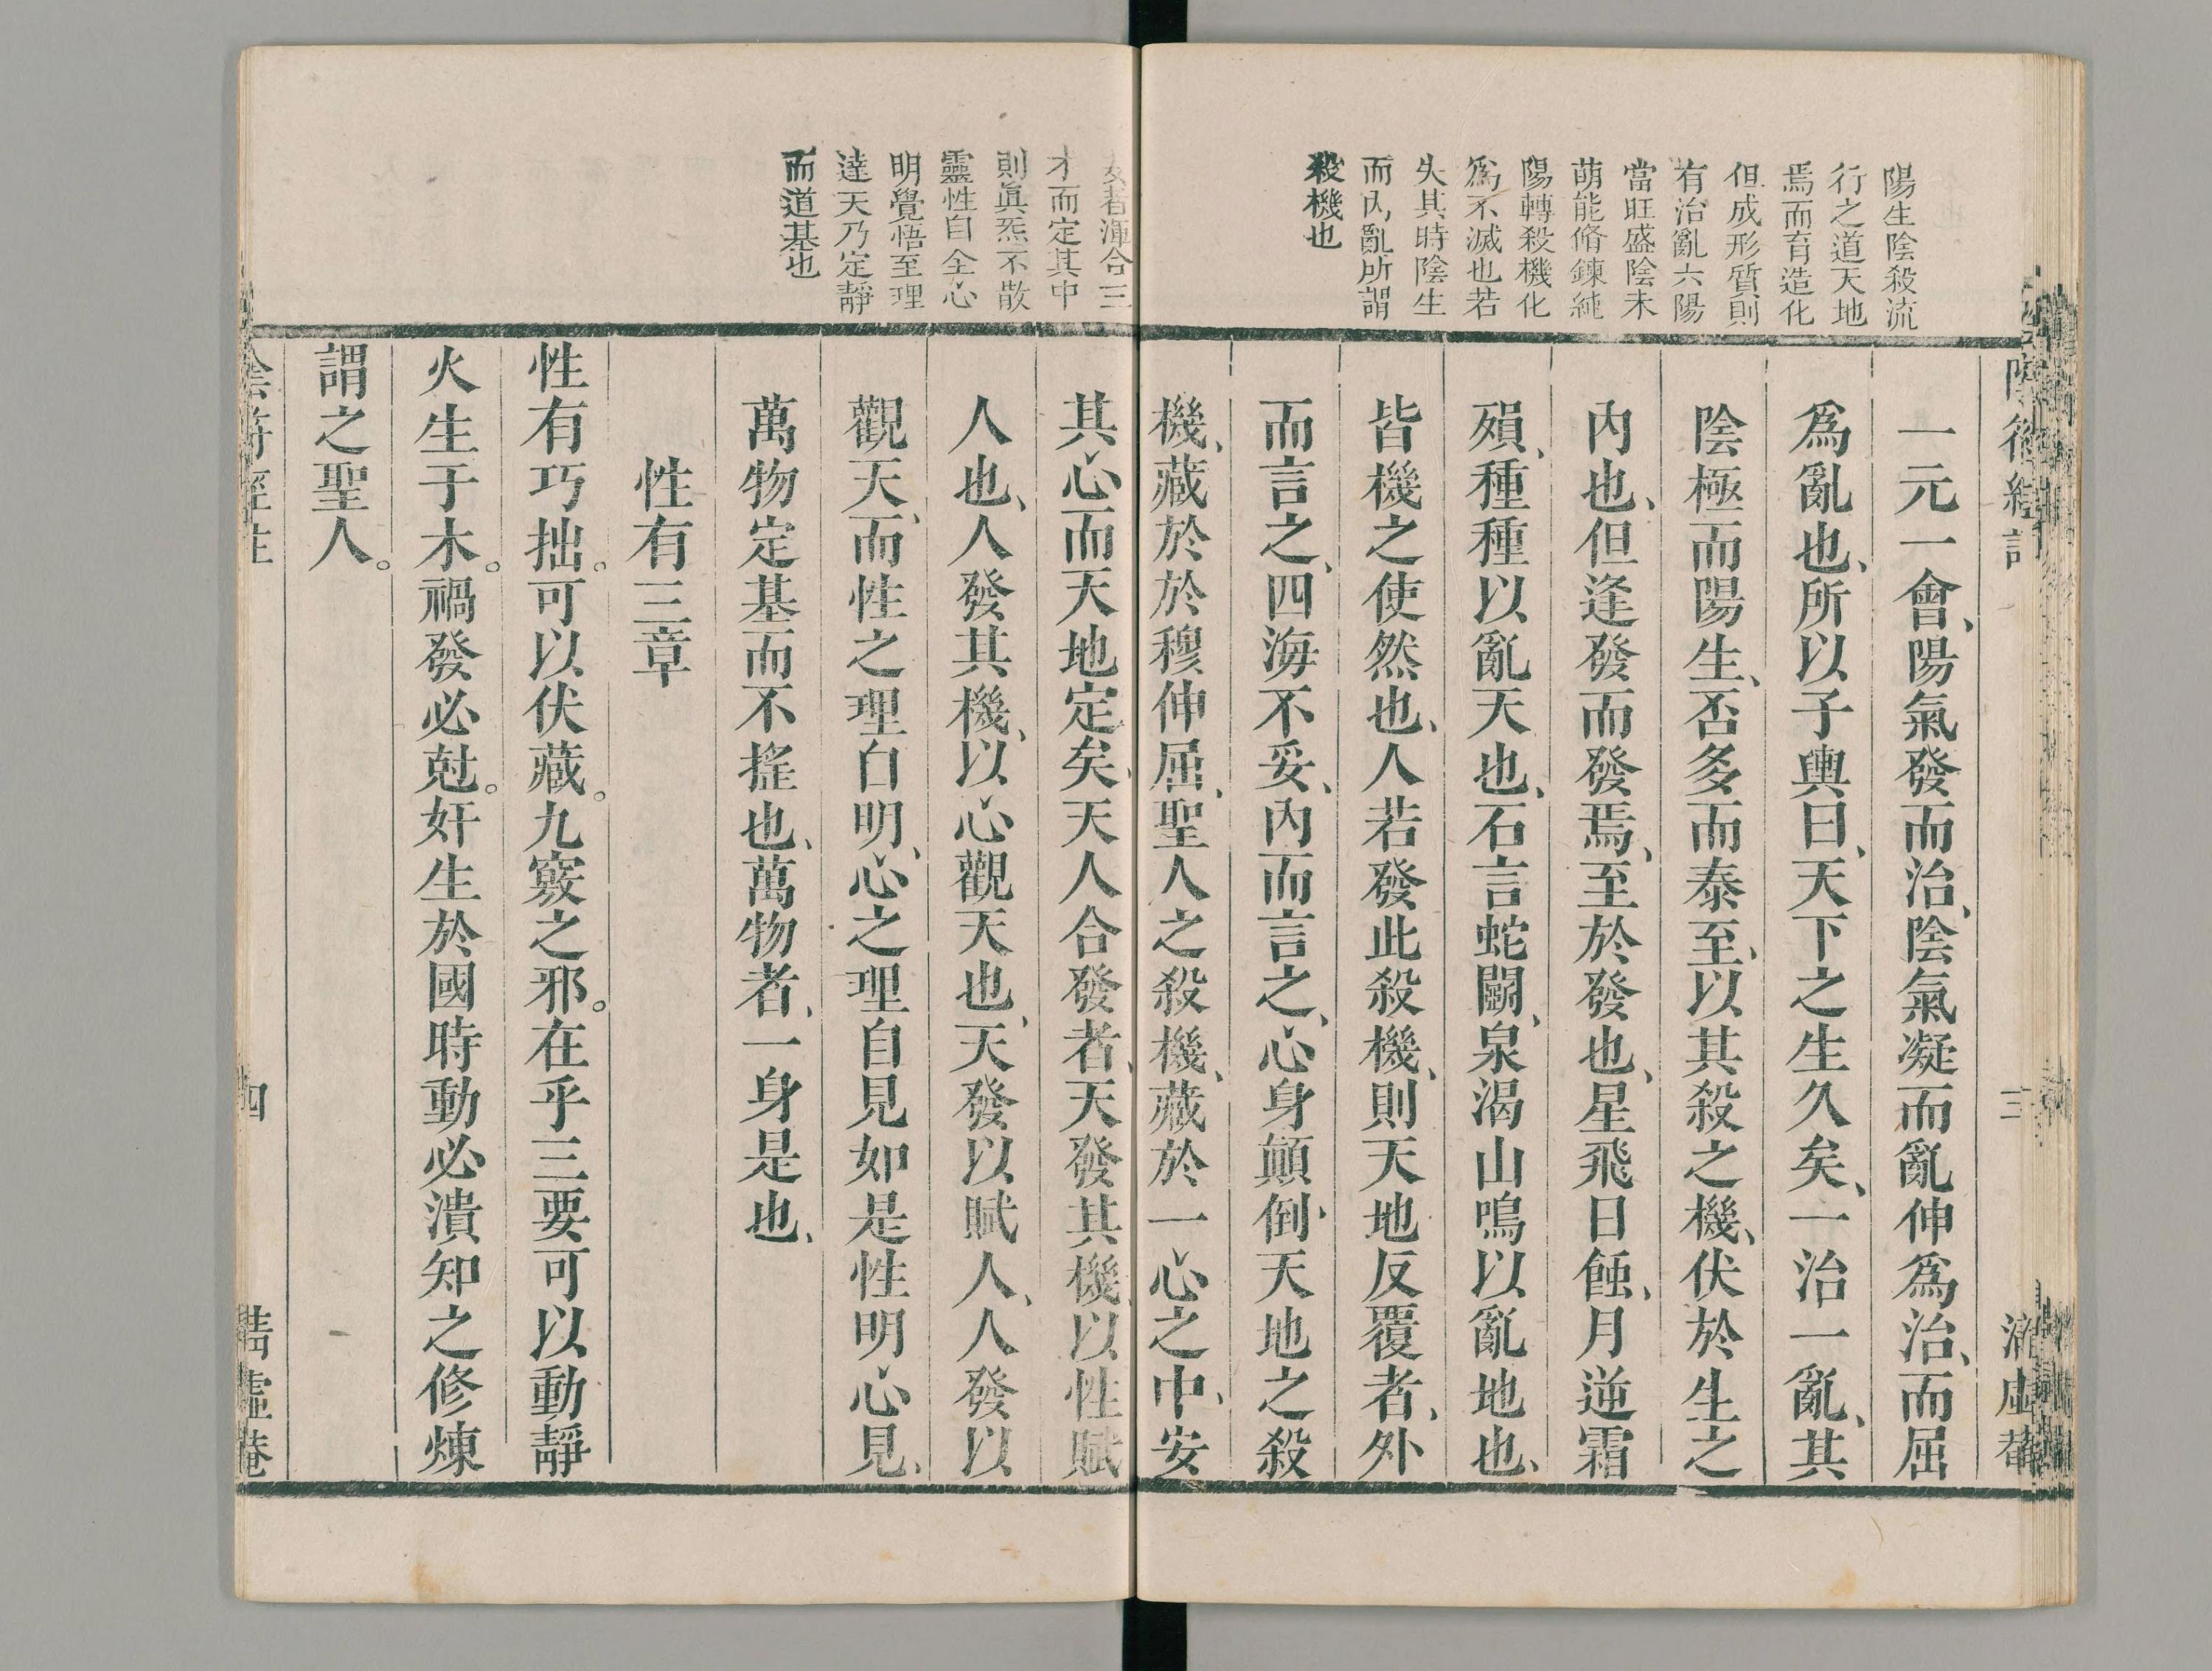 陽生陰殺流
行之道天地
焉而育造化
但成形質則
有治亂六陽
當旺盛陰未
萌能脩鍊純
陽轉殺機化
爲不滅也若
失其時陰生
而內亂所謂
殺機也
三
一元一會、陽氣發而治、陰氣凝而亂伸爲治、而屈
爲亂也、所以子輿曰、天下之生久矣、一治一亂、其
陰極而陽生、否多而泰至、以其殺之機、伏於生之
內也、但逢發而發焉、至於發也、星飛日蝕、月逆霜
殞、種種以亂天也、石言蛇鬬、泉渴山鳴以亂地也、
皆機之使然也、人若發此殺機、則天地反覆者、外
而言之、四海不妥、內而言之、心身顛倒、天地之殺
機、藏於於穆伸屈、聖人之殺機、藏於一心之中、安
者渾合三
才而定其中
則眞炁不散
靈性自全心
明覺悟至理
達天乃定靜
而道基也
其心而天地定矣、天人合發者、天發其機、以性賦
人也、人發其機、以心觀天也、天發以賦人、人發以
觀天、而性之理白明、心之理自見如是性明心見、
萬物定基而不搖也、萬物者、一身是也、
性有三章
性有巧拙。可以伏藏。九竅之邪。在乎三要可以動靜
火生于木。禍發必尅。奸生於國時動必潰知之修煉
謂之聖人。
陰符經註
四
虛菴